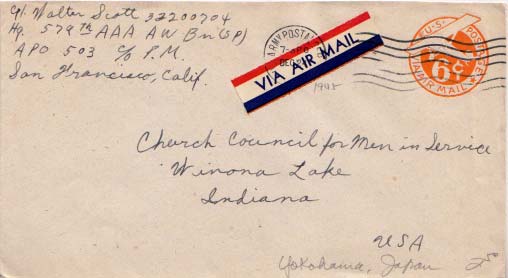 Cpl. Walter Scott 32200704
Hq. 579th AAA AW Bn (SP)
APO 503 c/o P.M.
San Francisco, Calif.
ARMY POSTAL
DEC
1945
VIA AIR MAIL
U.S. POSTAGE
6¢
VIA AIR MAIL
Church Council for Men in Service
Winona Lake
Indiana
USA
Yokohama, Japan
2 50